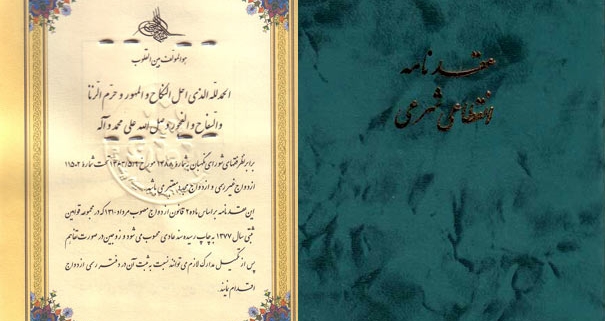 هو المؤلف بین القلوب
الحمد لله الذی احل النکاح و المهور و حرّم الزنا
والسفاح و الفجور و صل الله علی محمد و آله
برابر نظر فقهای شورای نگهبان به شماره ۱۴۸۸ مورخ ۱۳۶۳/۵/۹ تحت شماره ۱۱۵۰۲
ازدواج غیر رسمی و ازدواج مجدد معتبر می باشد.
این عقدنامه بر اساس ماده ۲ قانون ازدواج مصوب مرداد ۱۳۱۰ که در مجموعه قوانین
ثبتی سال ۱۳۷۷ به چاپ رسیده سند عادی محسوب می شود و زوجین در صورت تفاهم
پس از تکمیل مدارک لازم می توانند نسبت به ثبت آن در دفتر رسمی ازدواج
اقدام نمایند.
عقدنامه
انقطاعی شرعی